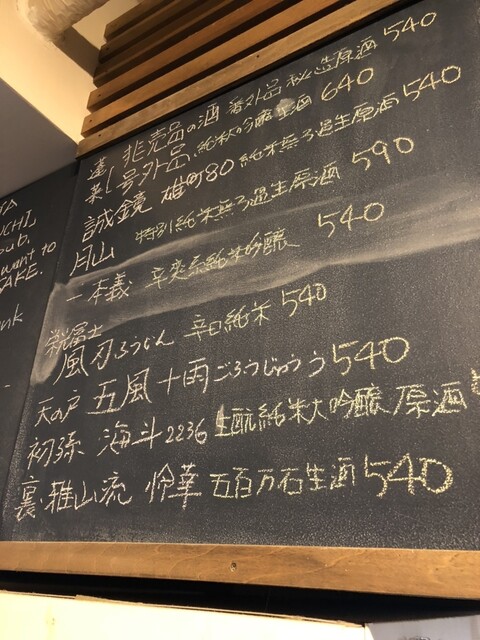 蓬莱 非売品の酒 番外品 秘造原酒 540
号外品 純米大吟醸生酒 640
誠鏡 雄町80 純米無ろ過生原酒 540
月山 特別純米無ろ過生原酒 590
一本義 辛爽系純米吟醸 540
栄冨士
風刃ふうじん 辛口純米 540
天の戸 五風十雨ごふうじゅうう 540
初孫 海斗2236 生酛純米大吟醸 原酒
裏・雅山流 怜華 五百万石生酒 540
UCHI
want to
SAKE.